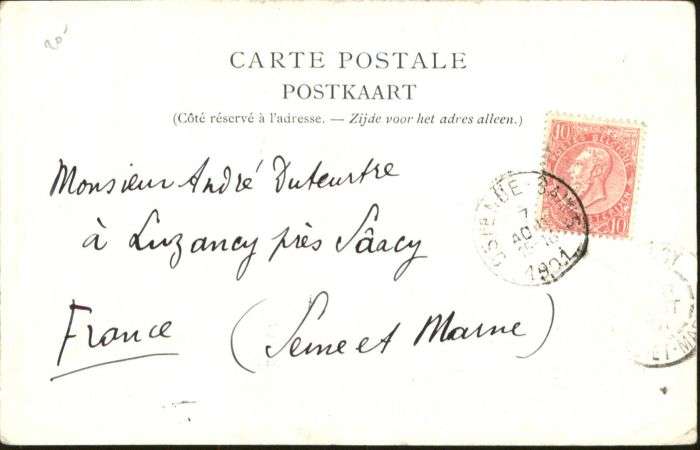 20-
CARTE POSTALE
POSTKAART
(Côté réservé à l'adresse. — Zijde voor het adres alleen.)
10 10
POSTES BELGIQUE
OSTENDE-BAINS
7
AOUT
1901
Monsieur André Duteurtre
à Luzancy près Sâacy
France (Seine et Marne)